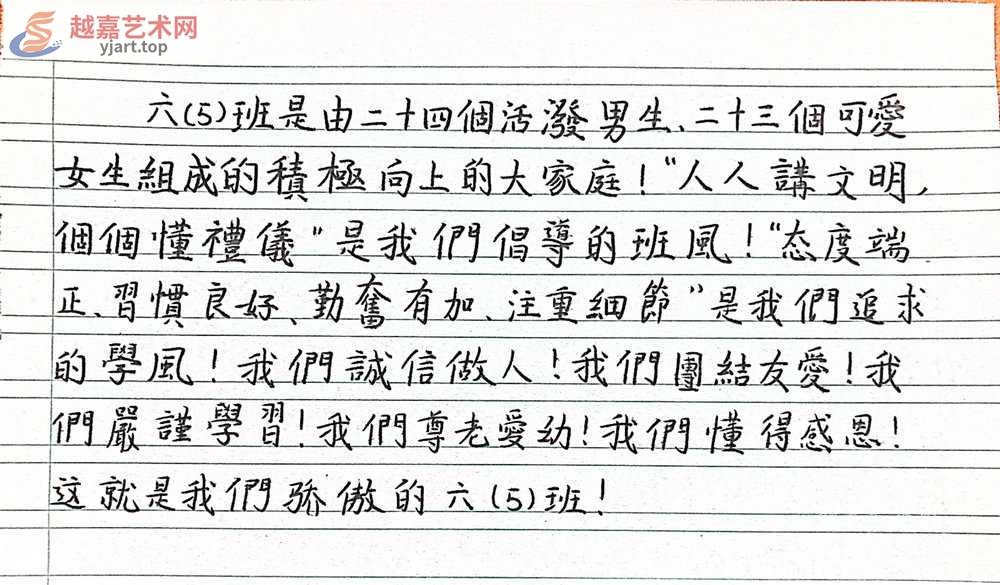 越嘉艺术网
yjart.top
六(5)班是由二十四個活潑男生、二十三個可愛
女生組成的積極向上的大家庭！“人人講文明,
個個懂禮儀”是我們倡導的班風！“态度端
正、習慣良好、勤奮有加、注重細節”是我們追求
的學風！我們誠信做人！我們團結友愛！我
們嚴謹學習！我們尊老愛幼！我們懂得感恩！
这就是我們骄傲的六(5)班！